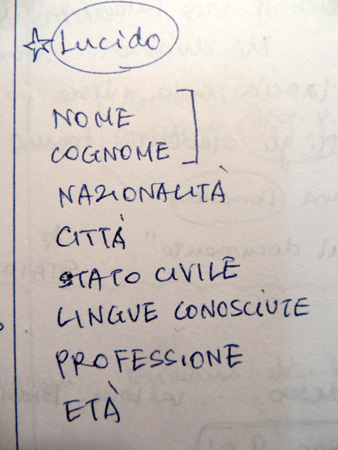 ☆ Lucido
NOME
COGNOME
NAZIONALITÀ
CITTÀ
STATO CIVILE
LINGUE CONOSCIUTE
PROFESSIONE
ETÀ